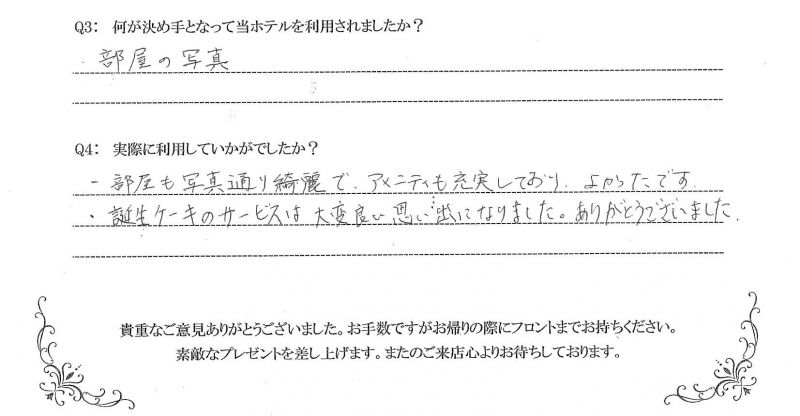 Q3: 何が決め手となって当ホテルを利用されましたか？
・部屋の写真
Q4: 実際に利用していかがでしたか？
- 部屋も写真通り綺麗で、アメニティも充実しており、よかったです
・誕生ケーキのサービスは大変良い思い出になりました。ありがとうございました。
貴重なご意見ありがとうございました。お手数ですがお帰りの際にフロントまでお持ちください。
素敵なプレゼントを差し上げます。またのご来店心よりお待ちしております。